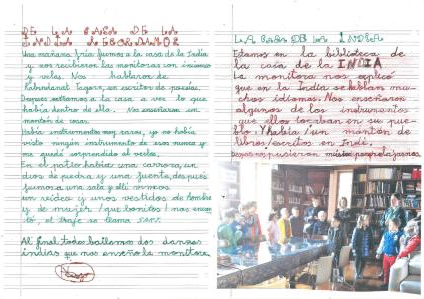 DE LA CASA DE LA
INDIA RECORDAMOS
Una mañana fría fuimos a la casa de la India
y nos recibieron las monitoras con incienso
y velas. Nos hablaron de
Rabindranat Tagore, un escritor de poesías.
Después entramos a la casa a ver lo que
había dentro de ella. Nos enseñaron un
montón de cosas.
Había instrumentos muy raros, yo no había
visto ningún instrumento de esos nunca y
me quedé sorprendido al verlos.
En el patio había una carroza, un
dios de piedra y una fuente, después
fuimos a una sala y allí vimos
un video y unos vestidos de hombre
y de mujer ¡que bonitos! nos encan-
tó, el traje se llama SARI.
Al final todos bailamos dos danzas
indias que nos enseño la monitora.
LA CASA DE LA INDIA
Estamos en la biblioteca de
la casa de la INDIA
La monitora nos explicó
que en la India se hablan mu-
chos idiomas. Nos enseñaron
algunos de los instrumentos
que ellos tocaban en su pue-
blo. Y había un montón de
libros escritos en Indi.
Después nos pusieron música para relajarnos